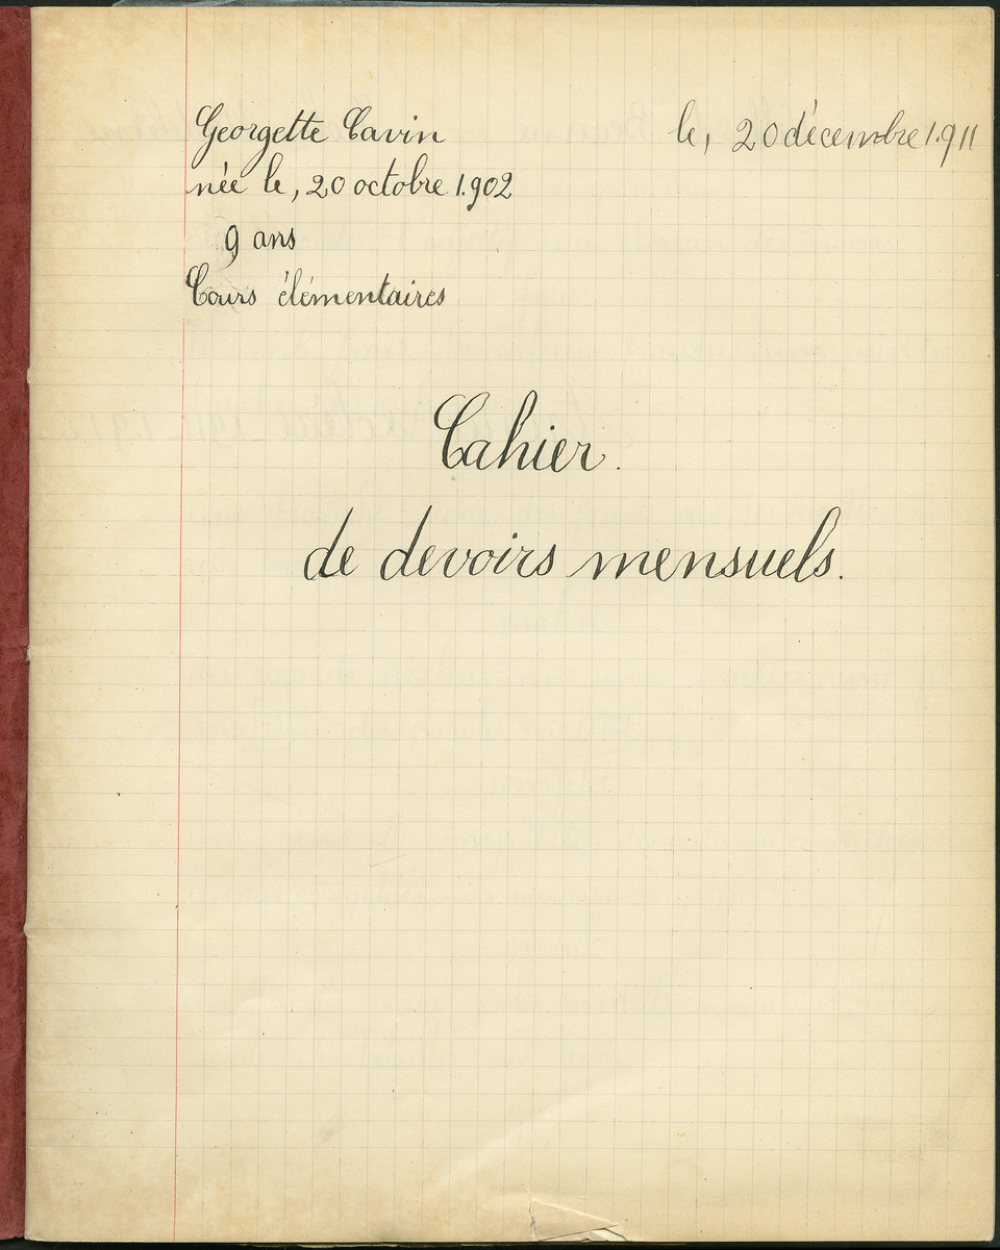 Georgette Cavin
le, 20 décembre 1.911
née le, 20 octobre 1.902
9 ans
Cours élémentaires
Cahier.
de devoirs mensuels.